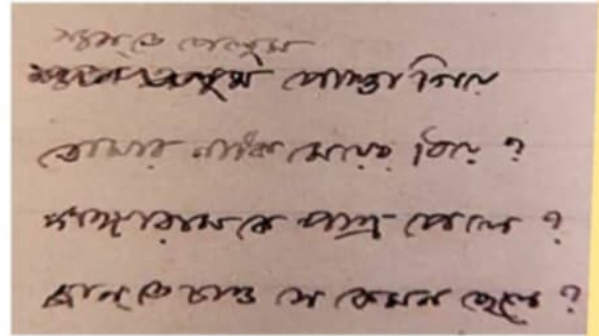 শুনতে পেলুম
পোস্তা গিয়ে
তোমার নাকি মেয়ের বিয়ে ?
গঙ্গারামকে পাত্র পেলে ?
জান্‌তে চাও সে কেমন ছেলে ?